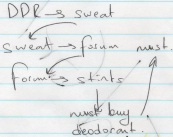 DDR → sweat
sweat → forum must
forum → stints
must buy
deodorant.